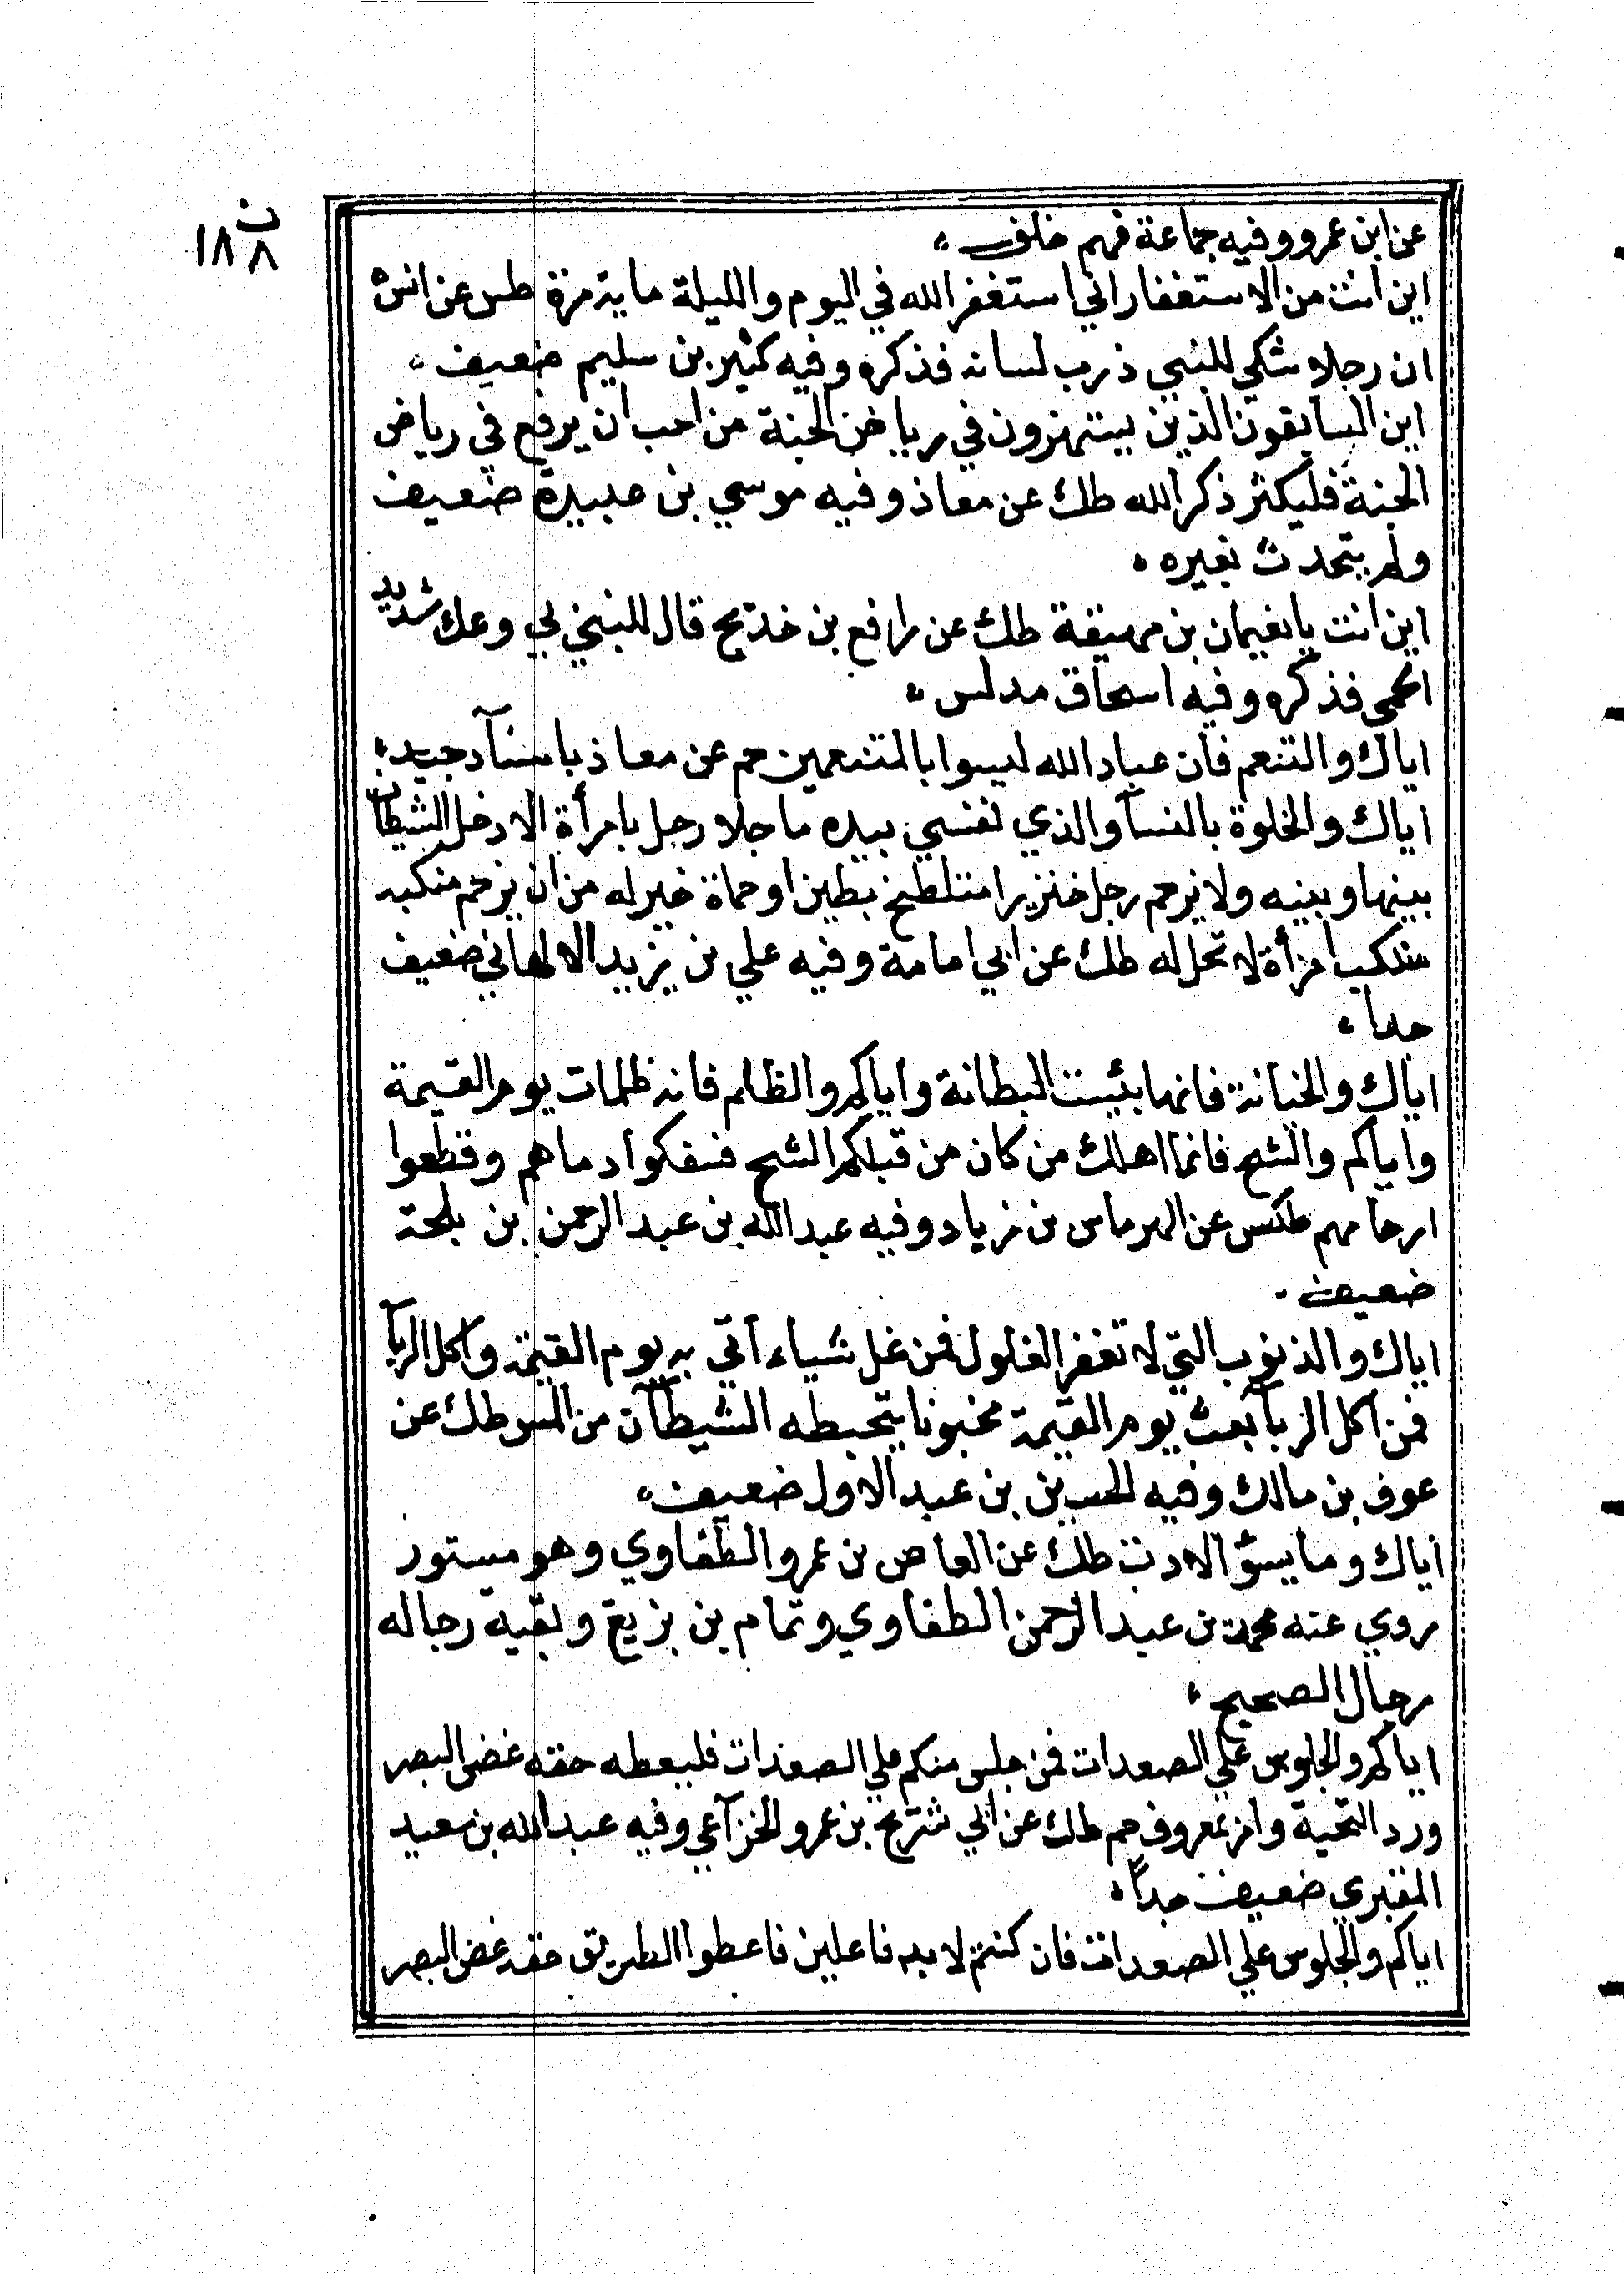 ن
٨ ١٨
عن ابن عمرو وفيه جماعة فهم خلف
اين انت من الاستغفار اني استغفر الله في اليوم والليلة ماية مرة طس عن انس
ان رجلا شكي للنبي ذرب لسانه فذكره وفيه كثير بن سليم ضعيف
اين السابقون الذين يستهترون في رياض الجنة من احب ان يرفع في رياض
الجنة فليكثر ذكر الله طك عن معاذ وفيه موسي بن عبيدة ضعيف
ولم يتحدث بغيره
اين انت يا نعيمان بن مهيقة طك عن رافع بن خديج قال للنبي بي وعك شديد
الحمي فذكره وفيه اسحاق مدلس
اياك والتنعم فان عباد الله ليسوا بالمتنعمين حم عن معاذ باسناد جيد
اياك والخلوة بالنسآ والذي نفسي بيده ما خلا رجل بامرأة الا دخل الشيطان
بينها وبينه ولا يزحم رجل خنزيرا متلطخ بطين او حماة خير له من ان يزحم منكبه
منكب امرأة لا تحل له طك عن ابي امامة وفيه علي بن يزيد الالهاني ضعيف
جدا
اياك والخيانة فانها بئيت البطانة واياكم والظلم فانه ظلمات يوم القيمة
واياكم والشح فانما اهلك من كان من قبلكم الشح فسفكوا دماهم وقطعوا
ارحامهم طكس عن الهرماس بن زياد وفيه عبد الله بن عبد الرحمن بن بلحة
ضعيف
اياك والذنوب التي لا تغفر الغلول فمن غل شياء آتي به يوم القيمة واكل الربآ
فمن اكل الربآ بعث يوم القيمة مخبونا يتخبطه الشيطان من المس طك عن
عوف بن مالك وفيه الحسين بن عبد الاول ضعيف
اياك وما يسؤ الادن طك عن العاص بن عمرو الطفاوي وهو مستور
روي عنه محمد بن عبد الرحمن الطفاوي وتمام بن بزيع وبقيه رجاله
رجال الصحيح
اياكم والجلوس علي الصعدات فمن جلس منكم علي الصعدات فليعطه حقه غض البصر
ورد التحية وامر بمعروف حم طك عن ابي شريح بن عمرو الخزآعي وفيه عبد الله بن سعيد
المقبري ضعيف جداً
اياكم والجلوس علي الصعدات فان كنتم لا بد فاعلين فاعطوا الطريق حقه غض البصر